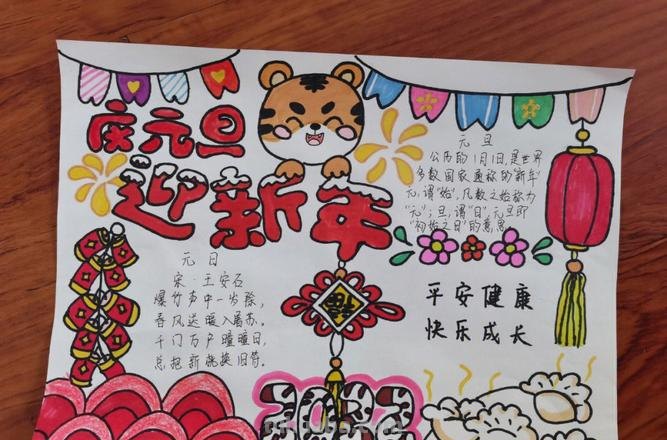 庆元旦
迎新年
元旦
公历的1月1日,是世界
多数国家通称的“新年”
元,谓“始”,凡数之始称为
“元”;旦,谓“日”;元旦即
“初始之日”的意思
元日
宋·王安石
爆竹声中一岁除,
春风送暖入屠苏。
千门万户曈曈日,
总把新桃换旧符。
福
平安健康
快乐成长
2022